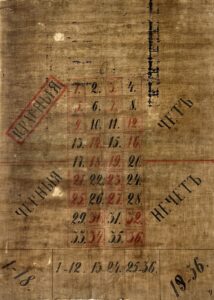 1. 2. 3. 4.
5. 6. 7. 8.
9. 10. 11. 12.
13. 14. 15. 16.
17. 18. 19. 20.
21. 22. 23. 24.
25. 26. 27. 28.
29. 30. 31. 32.
33. 34. 35. 36.
КРАСНЫЯ
ЧЕТЪ
ЧЕРНЫЯ
НЕЧЕТЪ
1-18
1-12. 13-24. 25-36.
19-36.